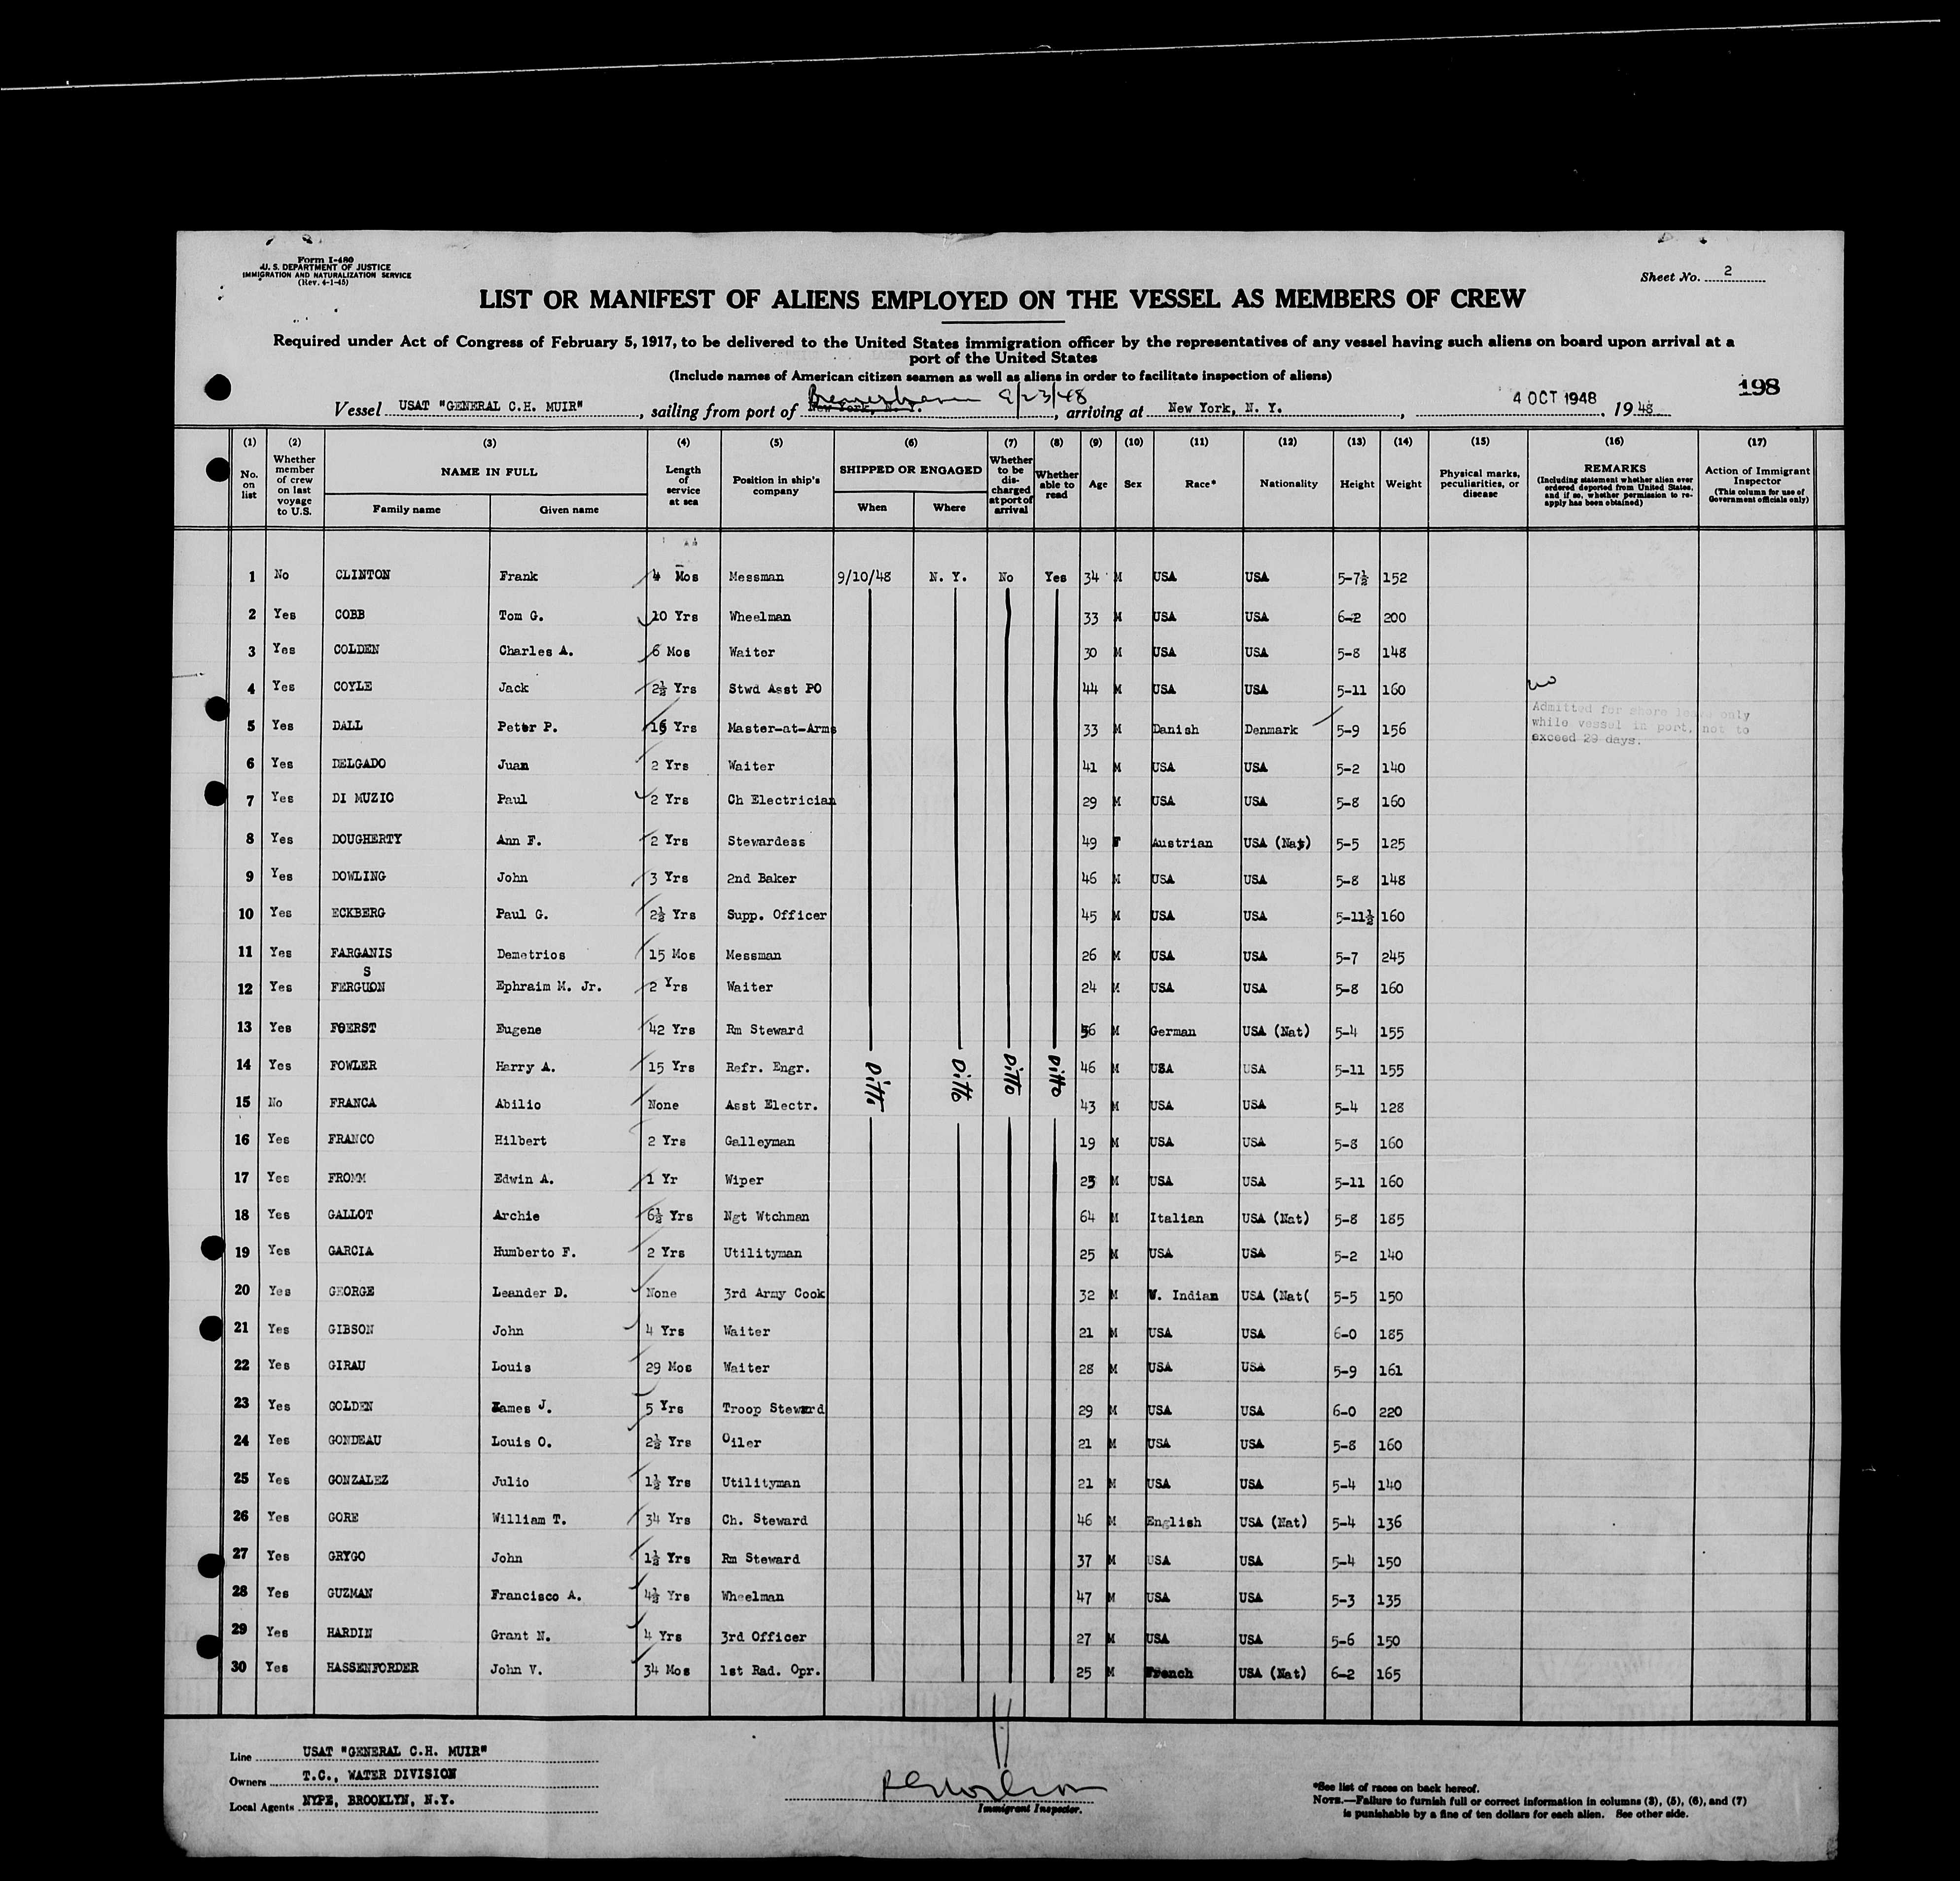 Form I-480
U. S. DEPARTMENT OF JUSTICE
IMMIGRATION AND NATURALIZATION SERVICE
(Rev. 4-1-45)
Sheet No. 2
LIST OR MANIFEST OF ALIENS EMPLOYED ON THE VESSEL AS MEMBERS OF CREW
Required under Act of Congress of February 5, 1917, to be delivered to the United States immigration officer by the representatives of any vessel having such aliens on board upon arrival at a
port of the United States
(Include names of American citizen seamen as well as aliens in order to facilitate inspection of aliens)
198
Vessel USAT "GENERAL C.H. MUIR", sailing from port of New York, N. Y. Bremerhaven 9/23/48, arriving at New York, N. Y., 4 OCT 1948, 1948
(1) (2) (3) (4) (5) (6) (7) (8) (9) (10) (11) (12) (13) (14) (15) (16) (17)
No. on list
Whether member of crew on last voyage to U.S.
NAME IN FULL
Family name
Given name
Length of service at sea
Position in ship's company
SHIPPED OR ENGAGED
When
Where
Whether to be discharged at port of arrival
Whether able to read
Age
Sex
Race*
Nationality
Height
Weight
Physical marks, peculiarities, or disease
REMARKS
(Including statement whether alien ever ordered deported from United States, and if so, whether permission to reapply has been obtained)
Action of Immigrant Inspector
(This column for use of Government officials only)
1 No CLINTON Frank 4 Mos Messman 9/10/48 N. Y. No Yes 34 M USA USA 5-7½ 152
2 Yes COBB Tom G. 10 Yrs Wheelman 33 M USA USA 6-2 200
3 Yes COLDEN Charles A. 6 Mos Waiter 30 M USA USA 5-8 148
4 Yes COYLE Jack 2½ Yrs Stwd Asst PO 44 M USA USA 5-11 160
5 Yes DALL Peter P. 16 Yrs Master-at-Arms 33 M Danish Denmark 5-9 156 no Admitted for shore leave only
while vessel in port, not to
exceed 29 days.
6 Yes DELGADO Juan 2 Yrs Waiter 41 M USA USA 5-2 140
7 Yes DI MUZIO Paul 2 Yrs Ch Electrician 29 M USA USA 5-8 160
8 Yes DOUGHERTY Ann F. 2 Yrs Stewardess 49 F Austrian USA (Nat) 5-5 125
9 Yes DOWLING John 3 Yrs 2nd Baker 46 M USA USA 5-8 148
10 Yes ECKBERG Paul G. 2½ Yrs Supp. Officer 45 M USA USA 5-11½ 160
11 Yes FARGANIS Demetrios 15 Mos Messman 26 M USA USA 5-7 245
S
12 Yes FERGUON Ephraim M. Jr. 2 Yrs Waiter 24 M USA USA 5-8 160
13 Yes FOERST Eugene 42 Yrs Rm Steward 56 M German USA (Nat) 5-4 155
14 Yes FOWLER Harry A. 15 Yrs Refr. Engr. Ditto Ditto Ditto Ditto 46 M USA USA 5-11 155
15 No FRANCA Abilio None Asst Electr. 43 M USA USA 5-4 128
16 Yes FRANCO Hilbert 2 Yrs Galleyman 19 M USA USA 5-8 160
17 Yes FROMM Edwin A. 1 Yr Wiper 25 M USA USA 5-11 160
18 Yes GALLOT Archie 6½ Yrs Ngt Wtchman 64 M Italian USA (Nat) 5-8 185
19 Yes GARCIA Humberto F. 2 Yrs Utilityman 25 M USA USA 5-2 140
20 Yes GEORGE Leander D. None 3rd Army Cook 32 M W. Indian USA (Nat( 5-5 150
21 Yes GIBSON John 4 Yrs Waiter 21 M USA USA 6-0 185
22 Yes GIRAU Louis 29 Mos Waiter 28 M USA USA 5-9 161
23 Yes GOLDEN James J. 5 Yrs Troop Steward 29 M USA USA 6-0 220
24 Yes GONDEAU Louis O. 2½ Yrs Oiler 21 M USA USA 5-8 160
25 Yes GONZALEZ Julio 1½ Yrs Utilityman 21 M USA USA 5-4 140
26 Yes GORE William T. 34 Yrs Ch. Steward 46 M English USA (Nat) 5-4 136
27 Yes GRYGO John 1½ Yrs Rm Steward 37 M USA USA 5-4 150
28 Yes GUZMAN Francisco A. 4½ Yrs Wheelman 47 M USA USA 5-3 135
29 Yes HARDIN Grant N. 4 Yrs 3rd Officer 27 M USA USA 5-6 150
30 Yes HASSENFORDER John V. 34 Mos 1st Rad. Opr. 25 M French USA (Nat) 6-2 165
Line USAT "GENERAL C.H. MUIR"
Owners T.C., WATER DIVISION
Local Agents NYPE, BROOKLYN, N.Y.
Immigrant Inspector.
*See list of races on back hereof.
NOTE.—Failure to furnish full or correct information in columns (3), (5), (6), and (7)
is punishable by a fine of ten dollars for each alien. See other side.